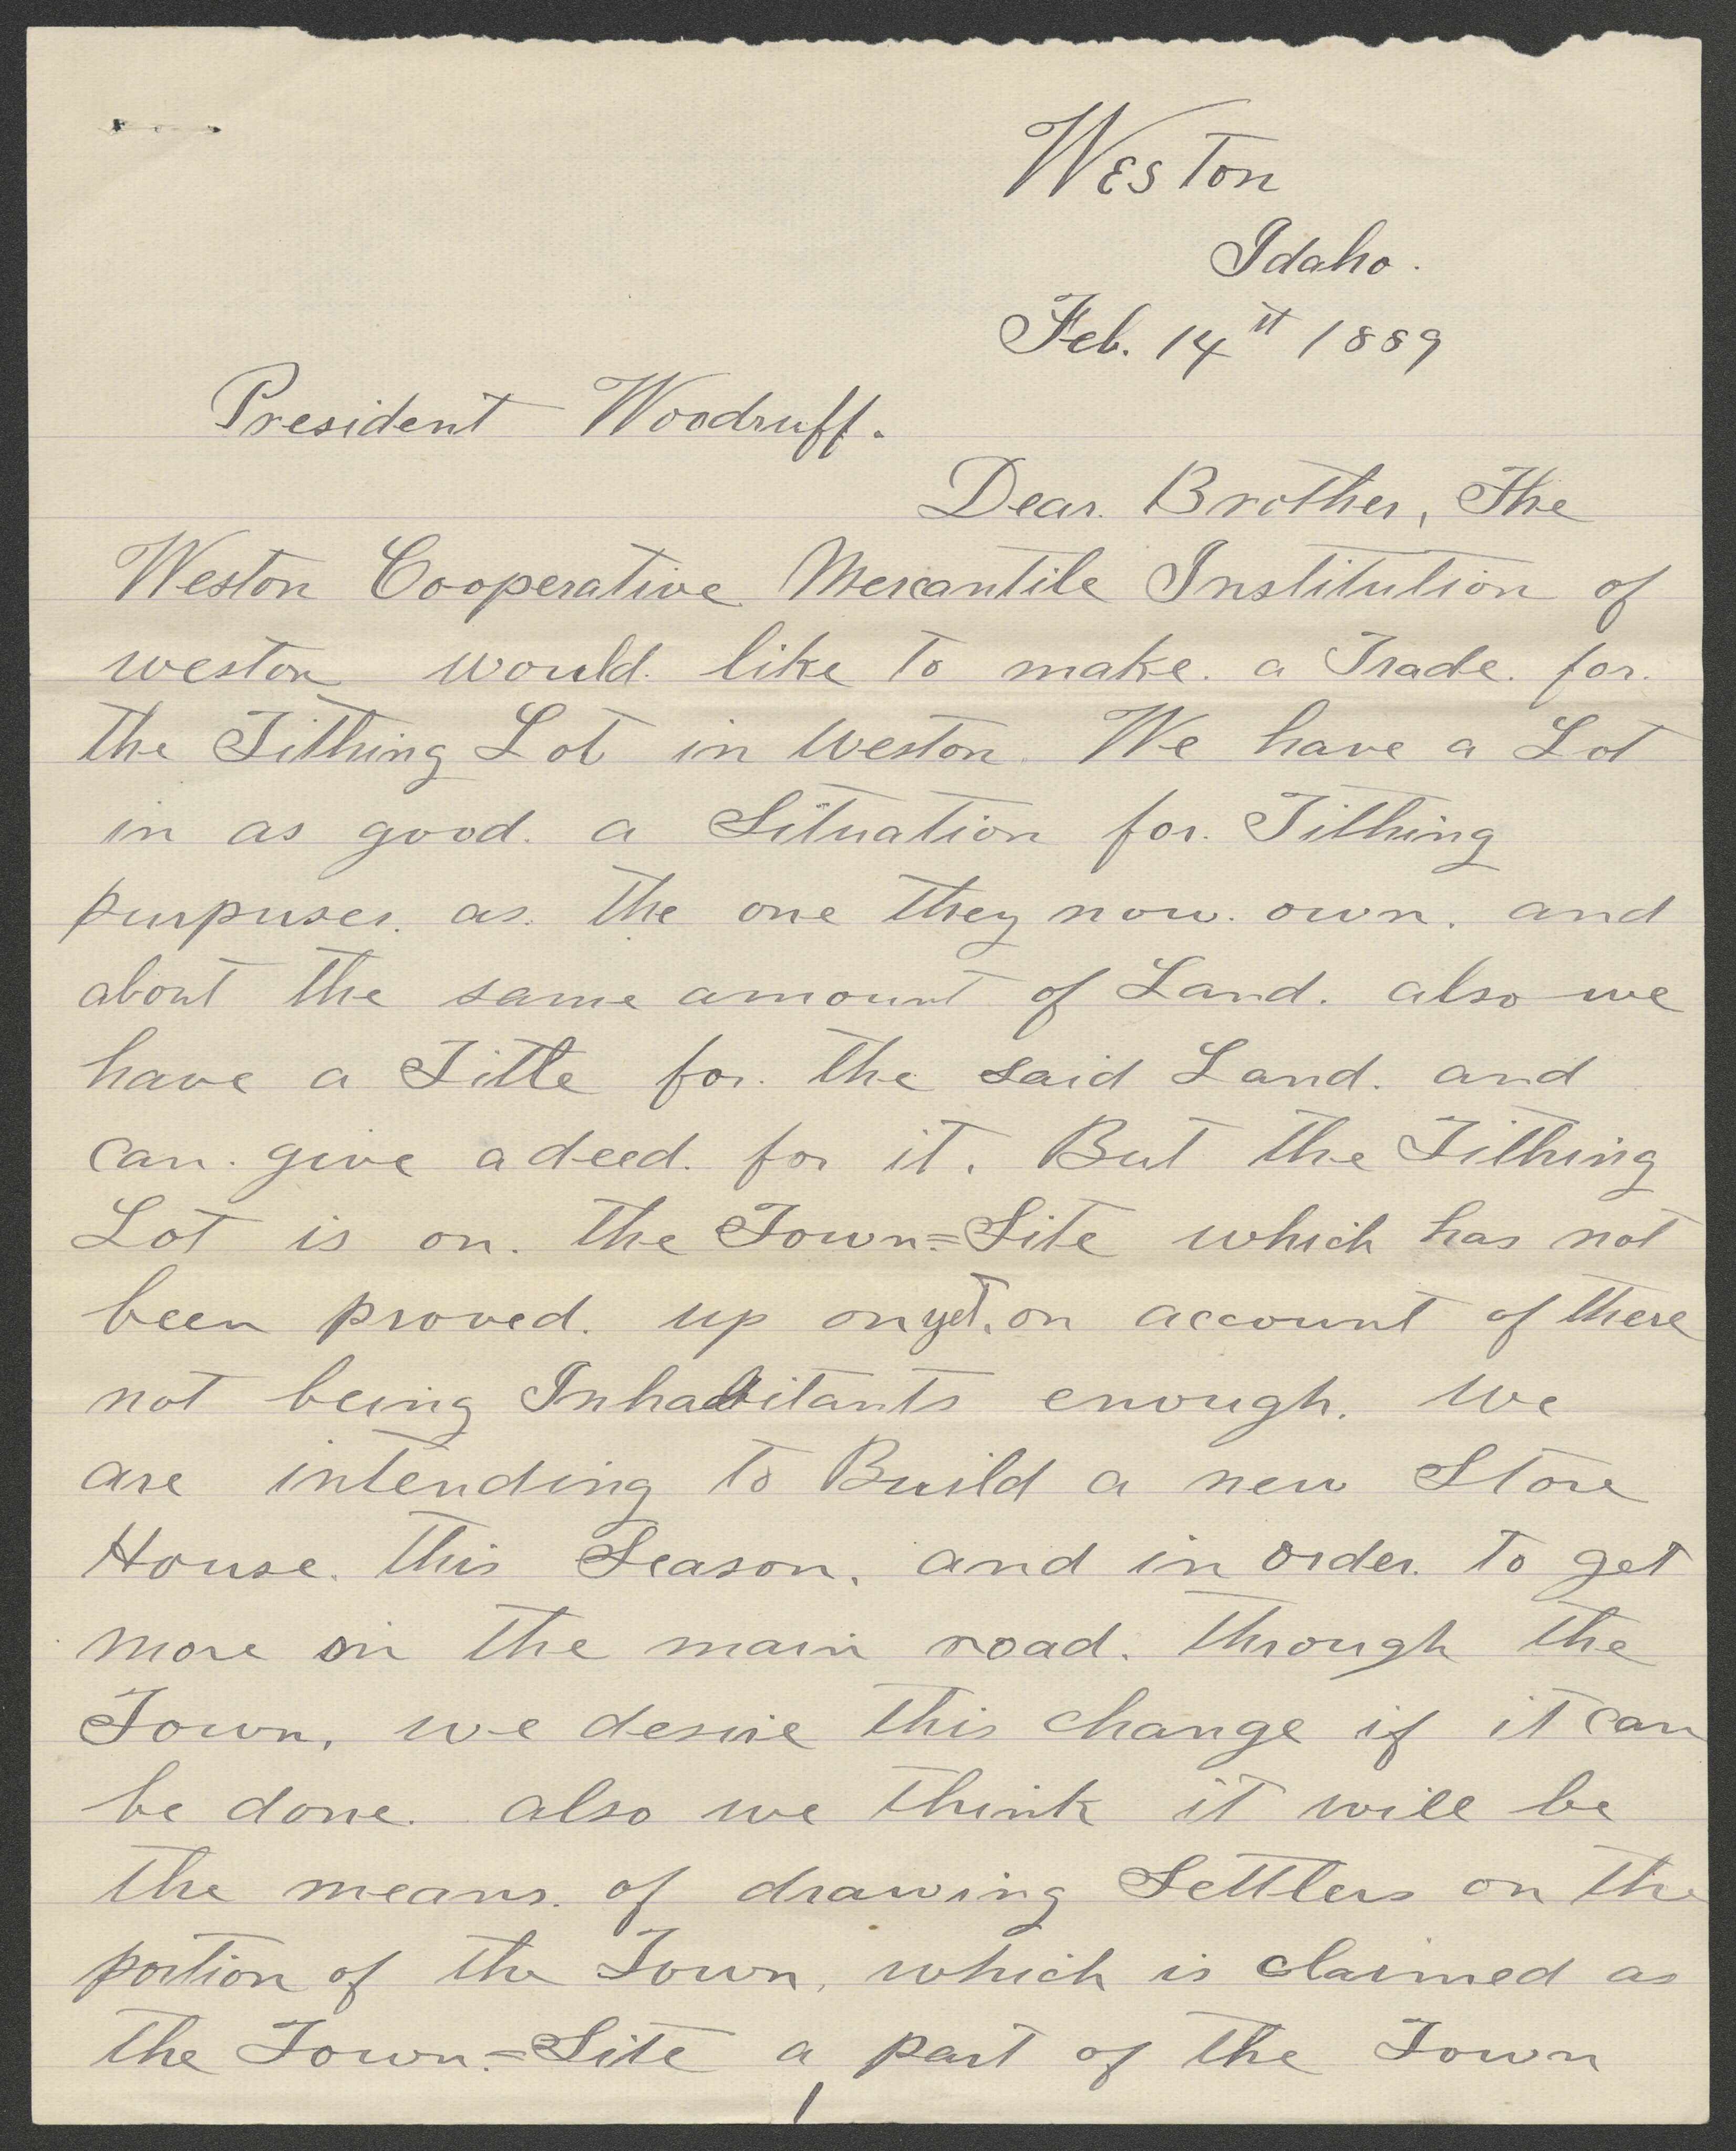 Weston
Idaho.
Feb. 14th 1889
President Woodruff.
Dear Brother, The
Weston Cooperative Mercantile Institution of
weston would like to make a Trade for
the Tithing Lot in Weston. We have a Lot
in as good a Situation for Tithing
purpuses as the one they now own, and
about the same amount of Land. also we
have a Title for the said Land. and
can give a deed for it. But the Tithing
Lot is on the Town=Site which has not
been proved up on yet, on account of there
not being Inhabitants enough. We
are intending to Build a new Store
House this Season, and in order to get
more on the main road through the
Town, we desire this change if it can
be done. also we think it will be
the means of drawing Settlers on the
portion of the Town, which is claimed as
the Town=Site a part of the Town
1